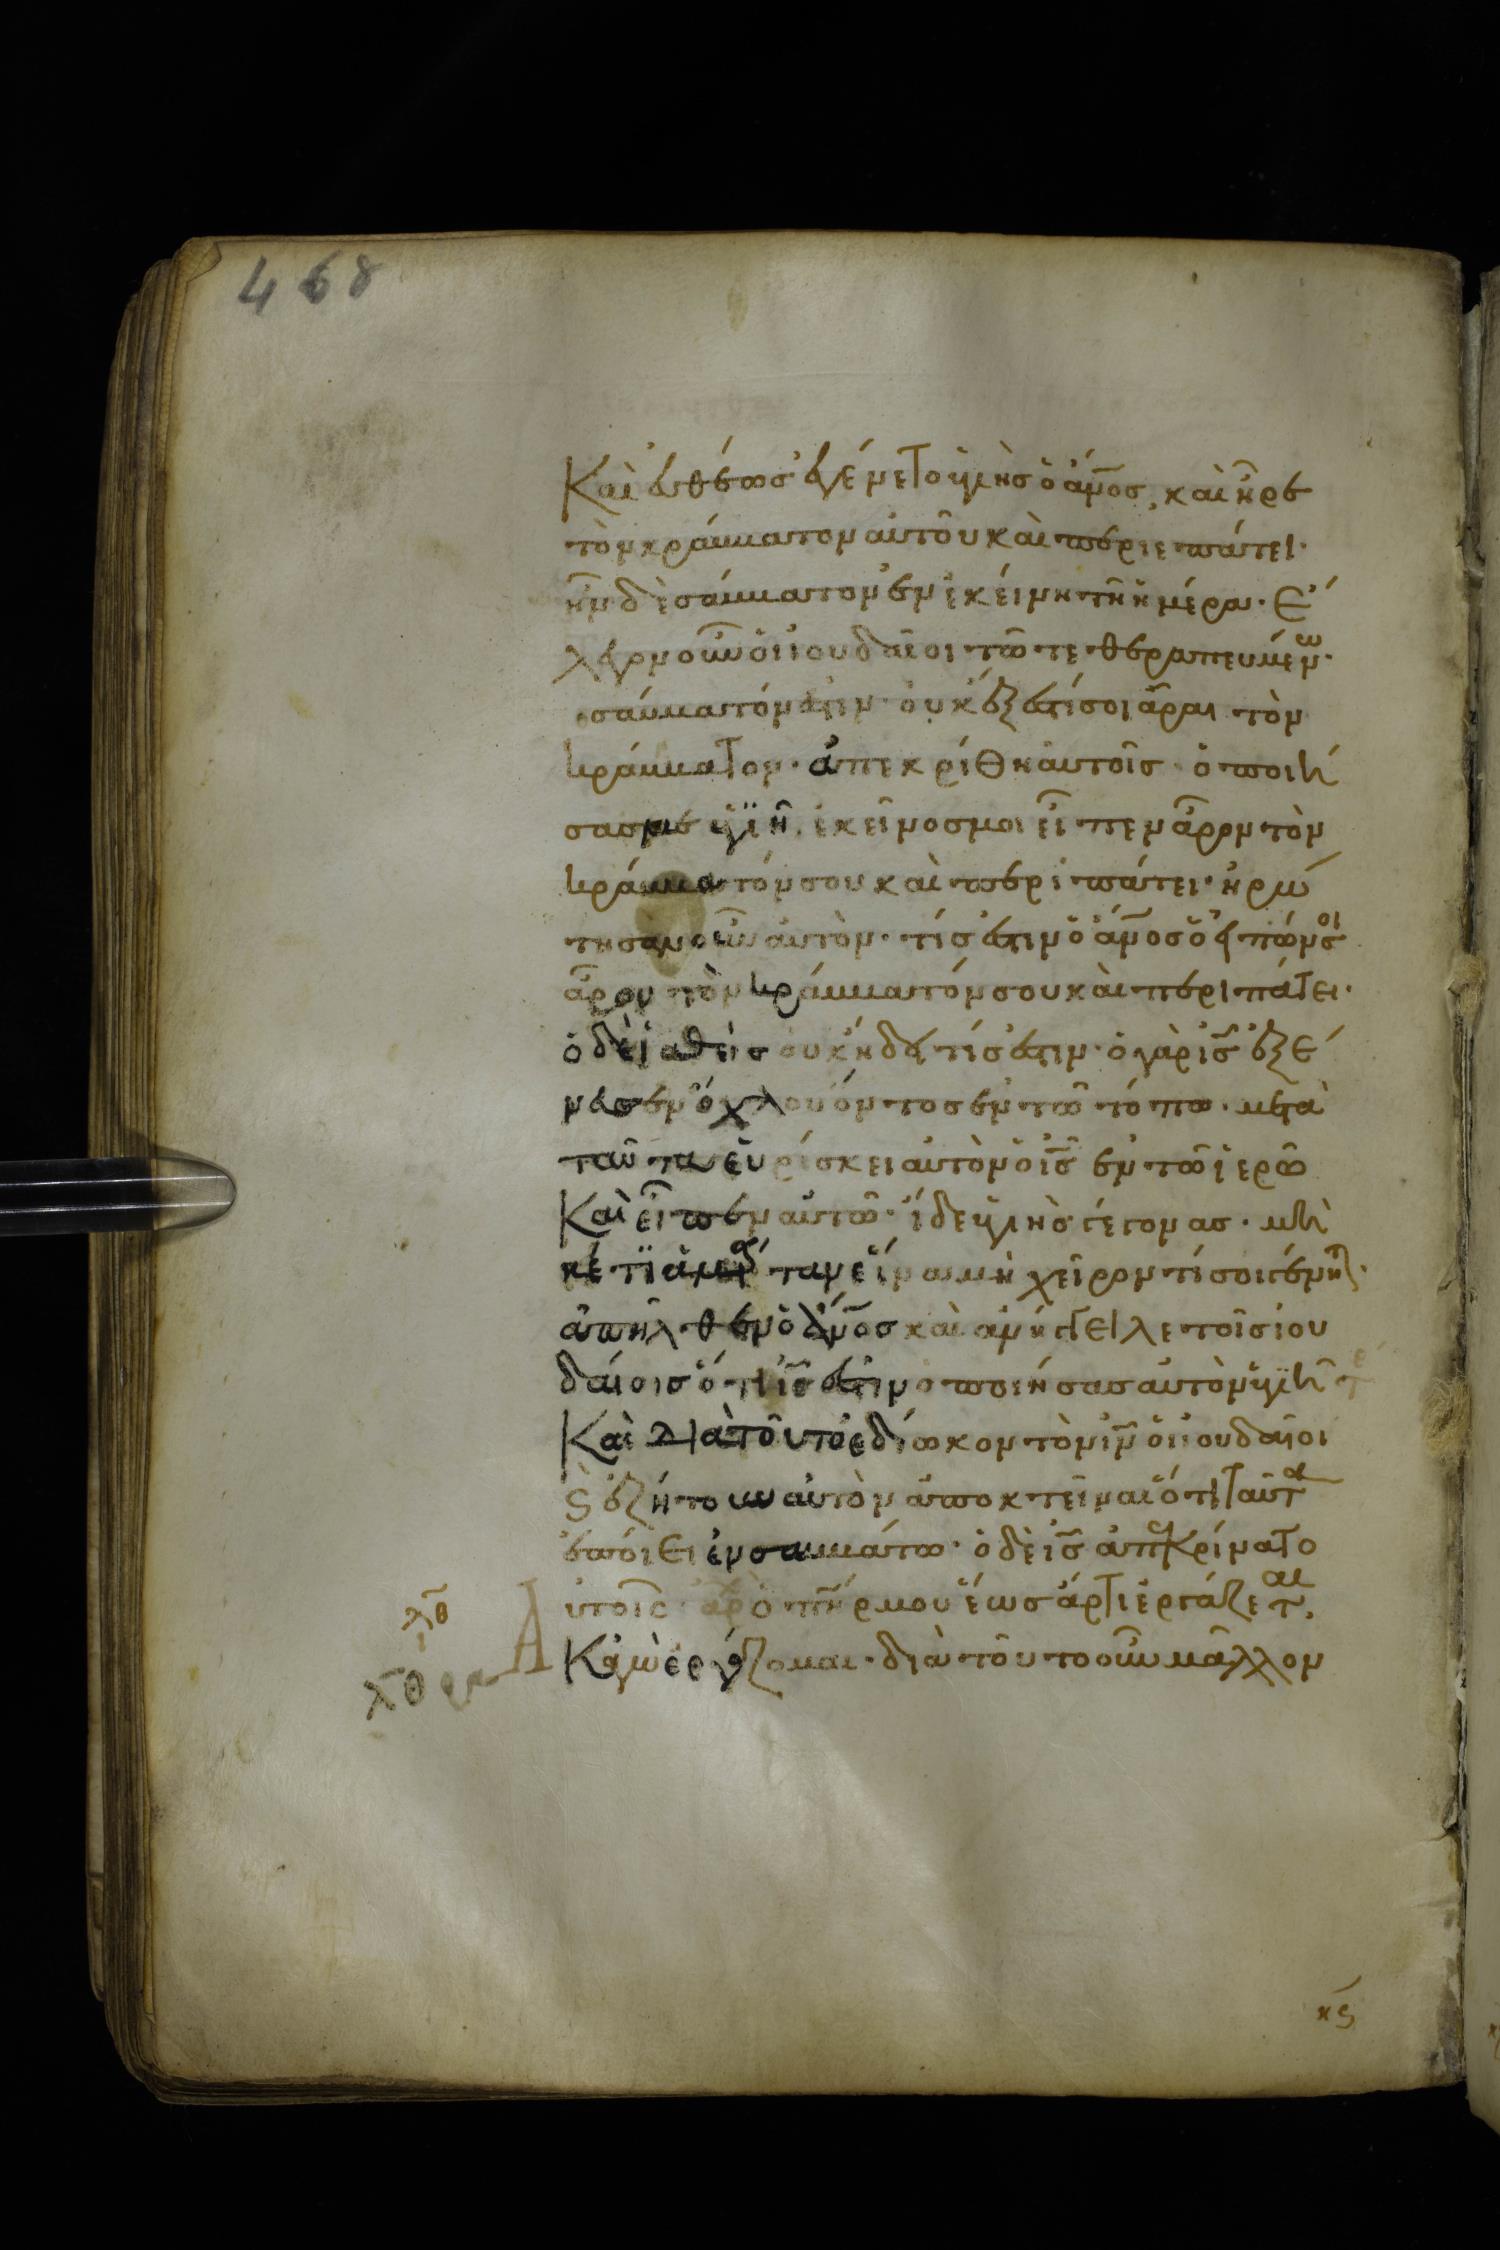 468
Καὶ εὐθέως ἐγένετο ὑγιὴς ὁ ἄν̅ο̅ς, καὶ ἦρε
τὸν κράββατον αὐτοῦ καὶ περιεπάτει·
ἦν δὲ σάββατον ἐν ἐκείνη τῆ ἡμέρα· Ἔ
λεγον οὖν οἱ ἰουδαῖοι τῶ τεθεραπευμένω·
σάββατόν ἐστιν· οὐκ ἔξεστί σοι ἆραι τὸν
κράββατον· ἀπεκρίθη αὐτοῖς· ὁ ποιή
σας με ὑγιῆ, ἐκεῖνός μοι εἶπεν ἆρον τὸν
κράββατόν σου καὶ περιπάτει· ἠρώ
τησαν οὖν αὐτὸν· τίς ἐστιν ὁ ἄν̅ο̅ς ὁ εἰπών σοι
ἆρον τὸν κράββατόν σου καὶ περιπάτει·
ὁ δὲ ἰαθεὶς οὐκ ἤδει τίς ἐστιν· ὁ γὰρ ι̅ς̅ ἐξέ
νευσεν ὄχλου ὄντος ἐν τῶ τόπω· μετὰ
ταῦτα εὑρίσκει αὐτὸν ὁ ι̅ς̅ ἐν τῶ ἱερῶ
Καὶ εἶπεν αὐτῶ· ἴδε ὑγιὴς γέγονας· μη
κέτι ἁμάρτανε ἵνα μὴ χεῖρον τί σοι γένηται·
ἀπῆλθεν ὁ ἄν̅ο̅ς καὶ ἀνήγγειλε τοῖς ἰου
δαίοις ὅτι ι̅ς̅ ἐστιν ὁ ποιήσας αὐτὸν ὑγιῆ
Καὶ διὰ τοῦτο ἐδίωκον τὸν ι̅ν̅ οἱ ἰουδαῖοι
ϛ ἐζήτουν αὐτὸν ἀποκτεῖναι ὅτι ταῦτα
ἐποίει ἐν σαββάτω· ὁ δὲ ι̅ς̅ ἀπεκρίνατο
αὐτοῖς· ὁ π̅η̅ρ μου ἕως ἄρτι ἐργάζεται,
Κἀγὼ ἐργάζομαι· διὰ τοῦτο οὖν μᾶλλον
λθ
λθ
κϛ